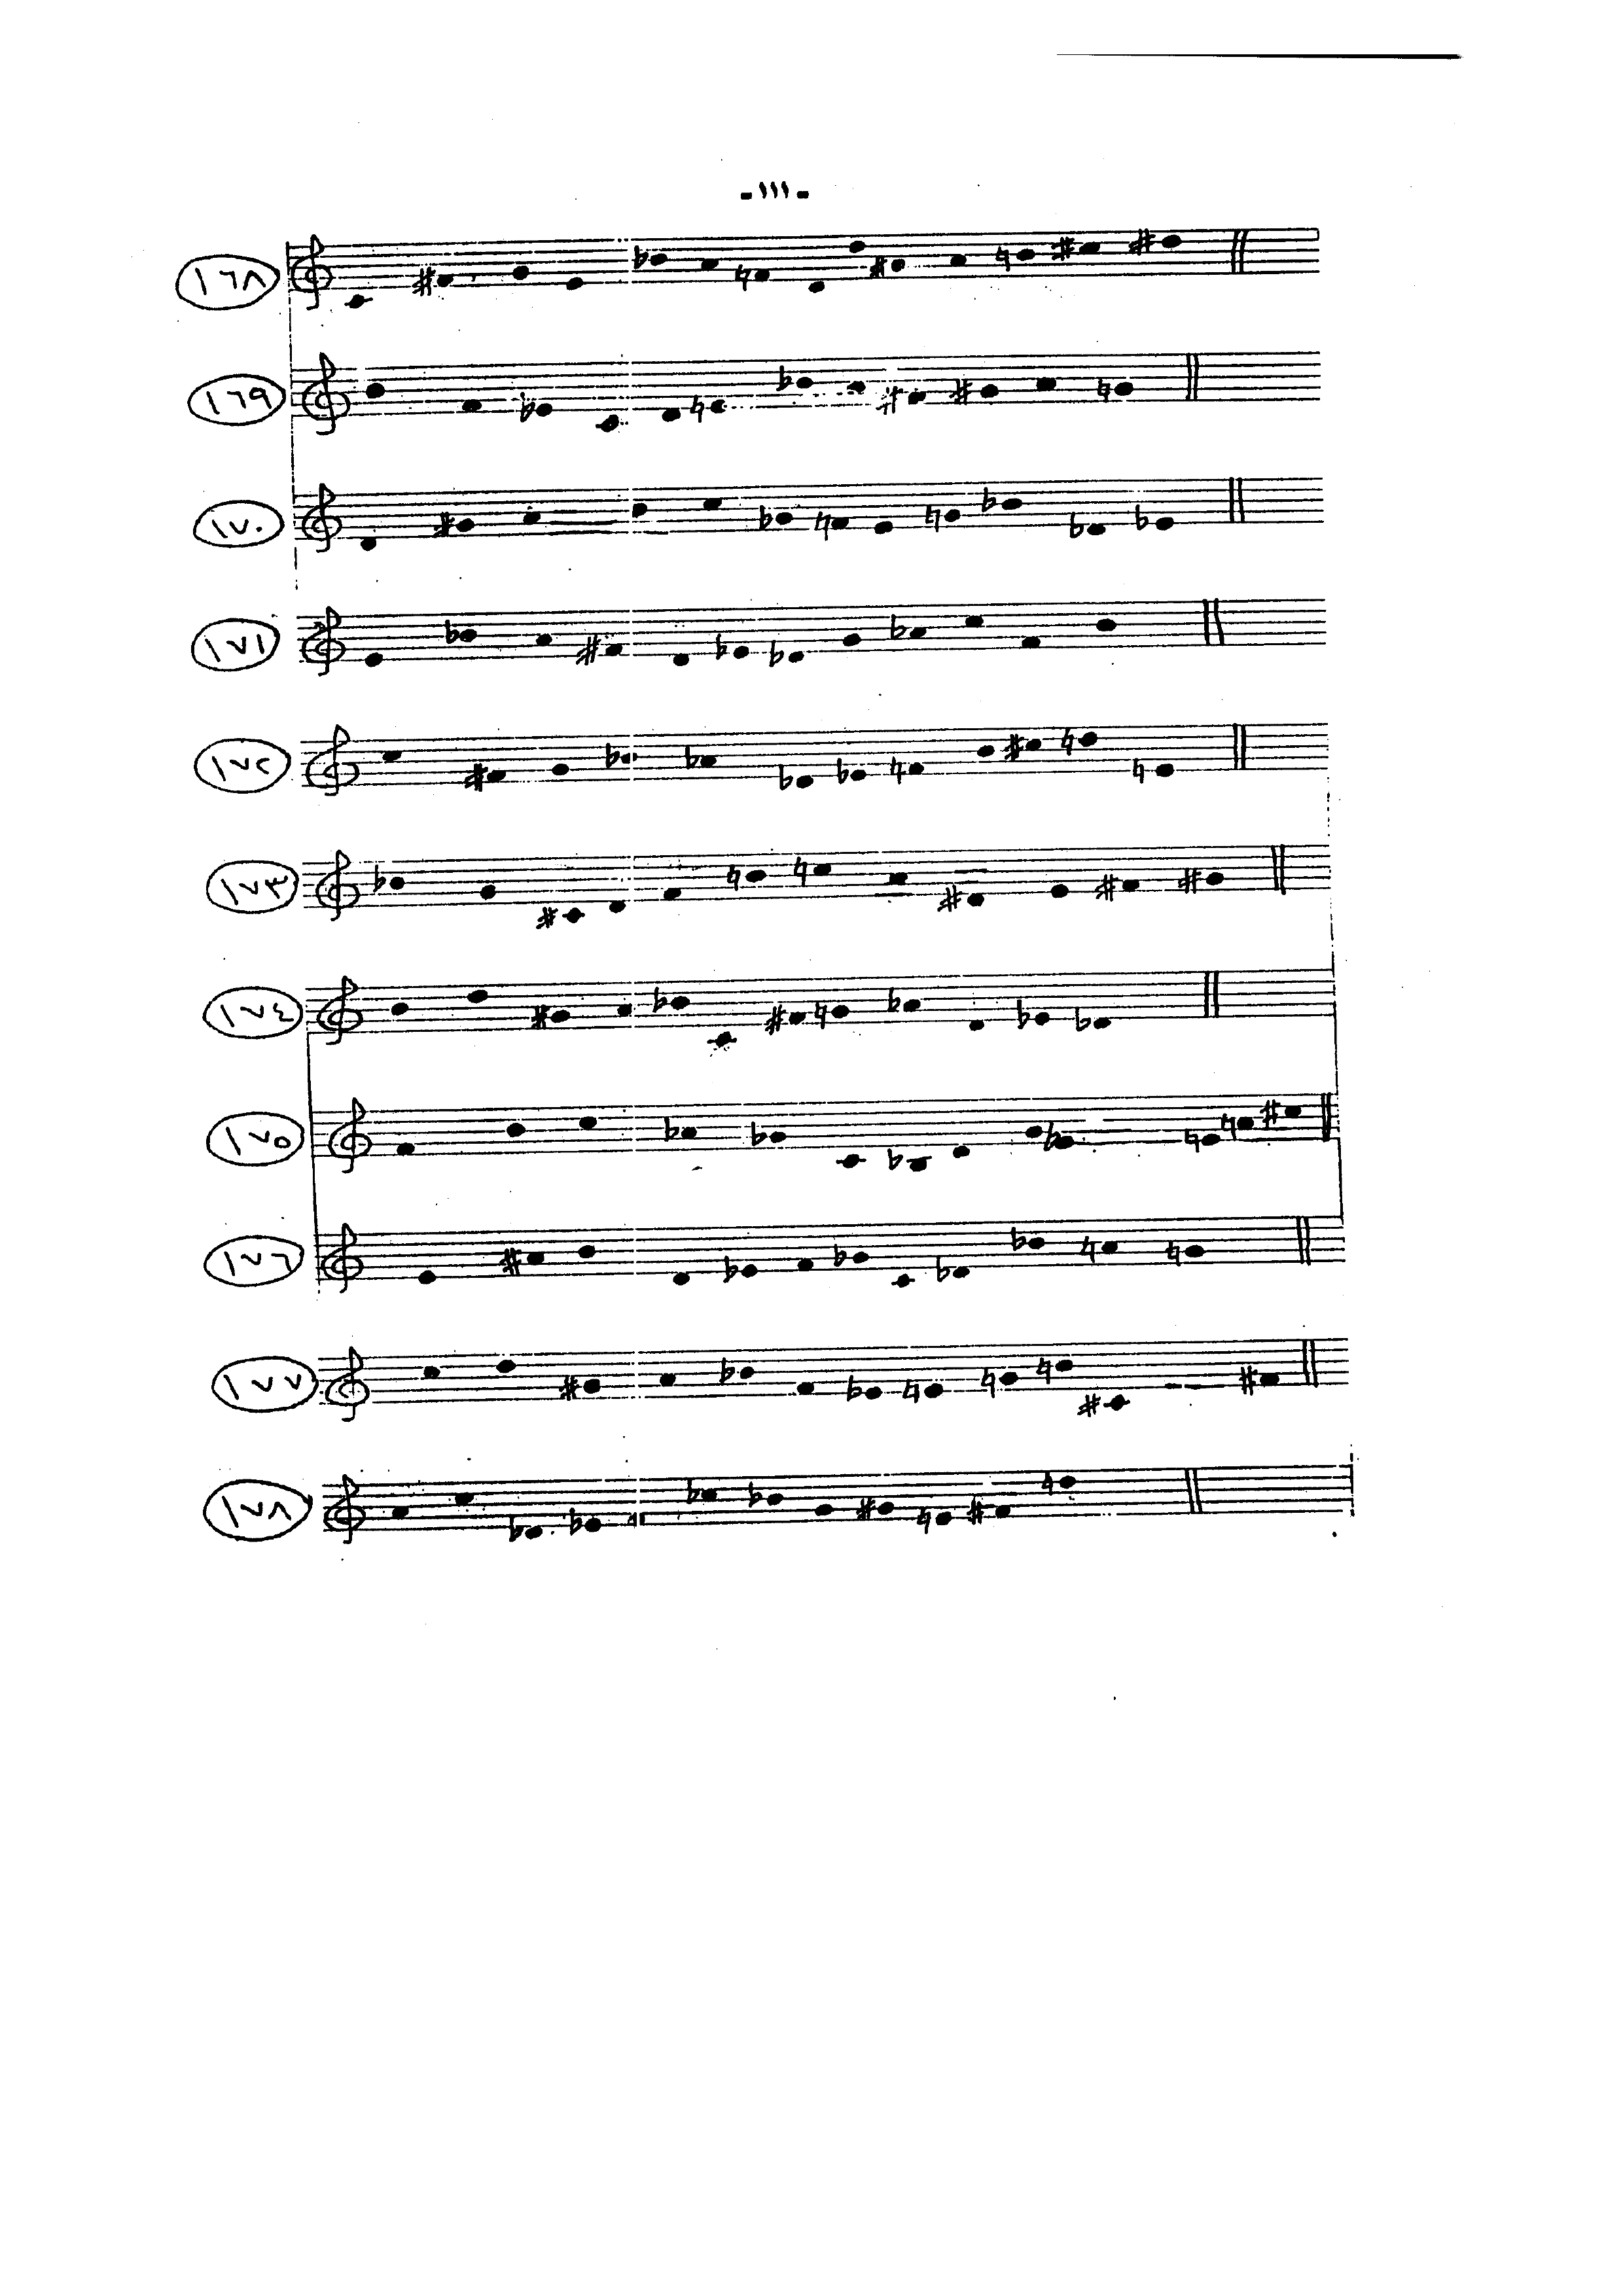 -١١١-
١٦٨
١٦٩
١٧٠
١٧١
١٧٢
١٧٣
١٧٤
١٧٥
١٧٦
١٧٧
١٧٨